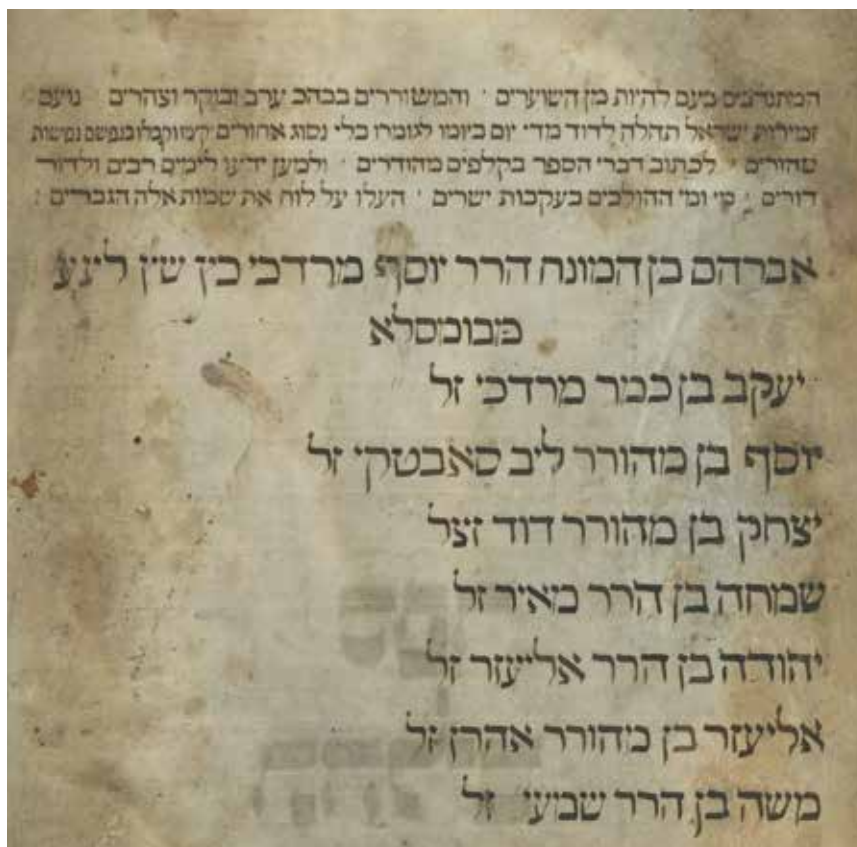 המתנדבים בעם להיות מן השוערים ׳ והמשוררים בבהב ערב ובוקר וצהרים ׳ נועם
זמירות ישראל תהלה לדוד מדי יום ביומו לגומרו בלי נסוג אחורים קימו וקבלו בנפשם נפשות
טהורים ׳ לכתוב דברי הספר בקלפים מהודרים ׳ ולמען ידעו לימים רבים ולדור
דורים ׳ מי ומי ההולכים בעקבות ישרים ׳ העלו על לוח את שמות אלה הגברים :
אברהם בן המונח הרר יוסף מרדכי כץ שץ
מבומסלא
יעקב בן כמר מרדכי זל
יוסף בן מהורר ליב סאבטקי זל
יצחק בן מהורר דוד זצל
שמחה בן הרר מאיר זל
יהודה בן הרר אליעזר זל
אליעזר בן מהורר אהרן זל
משה בן הרר שמעי זל